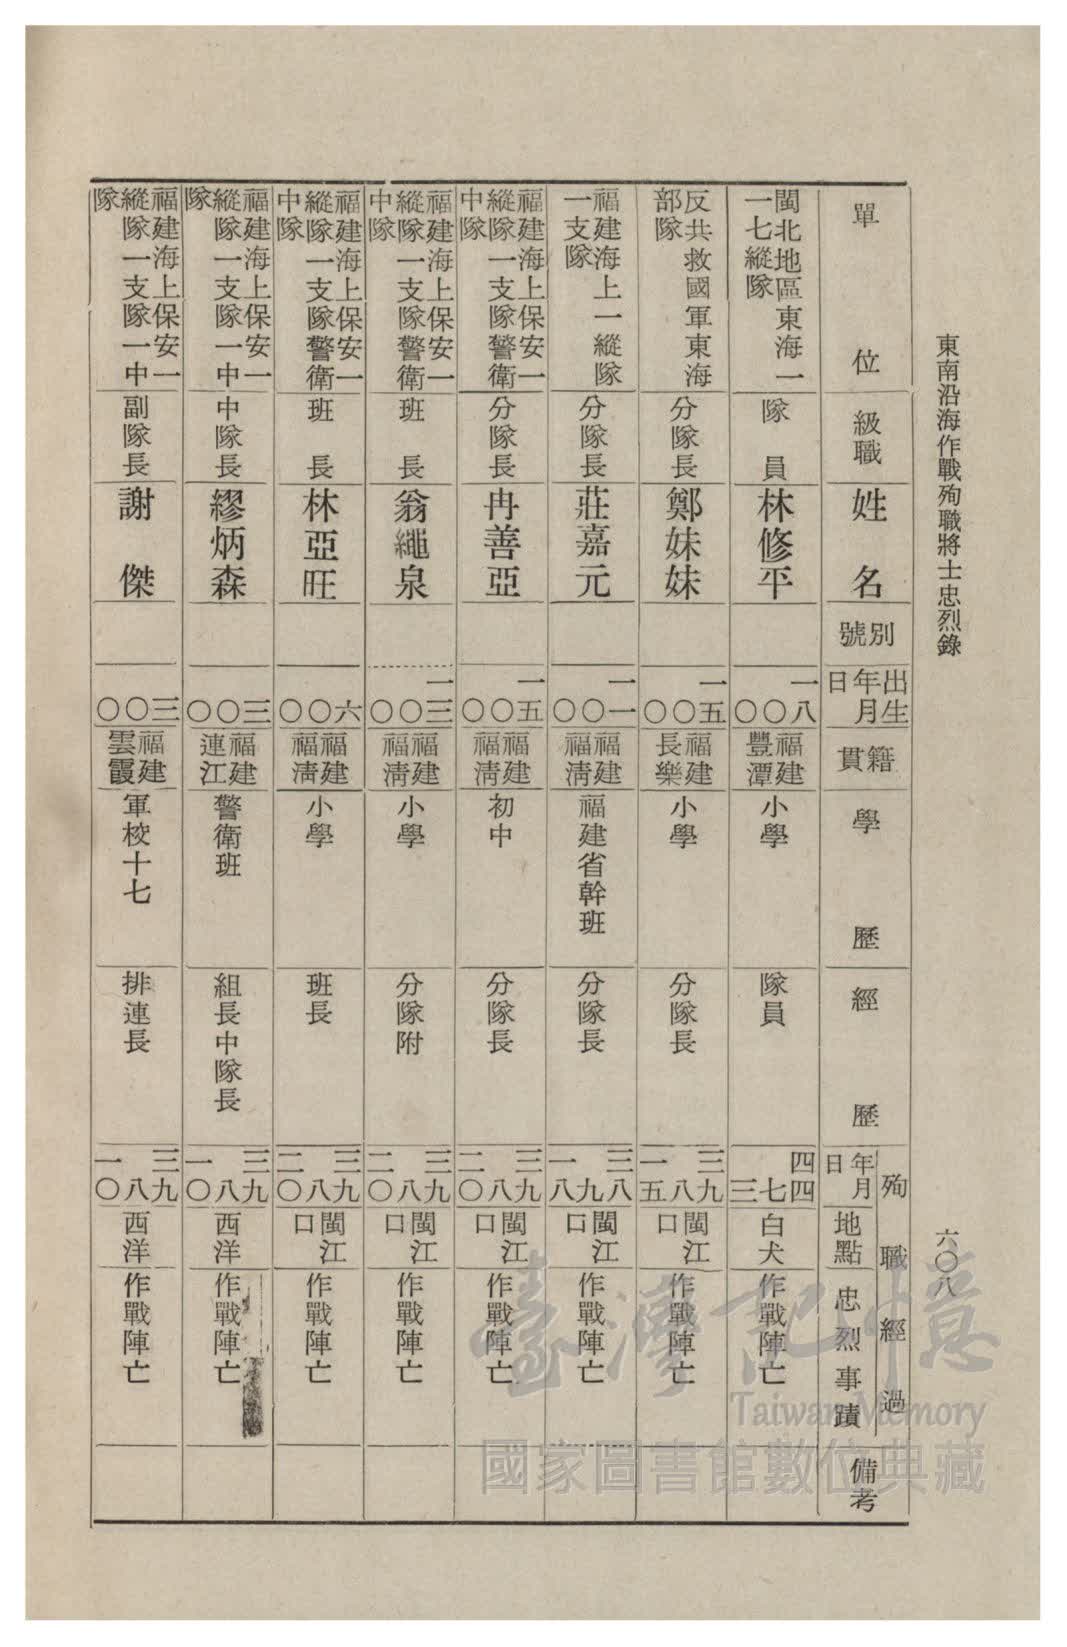 東南沿海作戰殉職將士忠烈錄
六〇八
單位
級職
姓名
別號
出生年月日
籍貫
學歷
經歷
殉職經過
年月日
地點
忠烈事蹟
備考
閩北地區東海一
一七縱隊
隊員
林修平
一八
〇
〇
福建
豐潭
小學
隊員
四四
七
三
白犬
作戰陣亡
反共救國軍東海
部隊
分隊長
鄭妹妹
一五
〇
〇
福建
長樂
小學
分隊長
三九
八
一五
閩江
口
作戰陣亡
福建海上一縱隊
一支隊
分隊長
莊嘉元
一一
〇
〇
福建
福淸
福建省幹班
分隊長
三八
九
一八
閩江
口
作戰陣亡
福建海上保安一
縱隊一支隊警衛
中隊
分隊長
冉善亞
一五
〇
〇
福建
福淸
初中
分隊長
三九
八
二〇
閩江
口
作戰陣亡
福建海上保安一
縱隊一支隊警衛
中隊
班長
翁繩泉
一三
〇
〇
福建
福淸
小學
分隊附
三九
八
二〇
閩江
口
作戰陣亡
福建海上保安一
縱隊一支隊警衛
中隊
班長
林亞旺
六
〇
〇
福建
福淸
小學
班長
三九
八
二〇
閩江
口
作戰陣亡
福建海上保安一
縱隊一支隊一中
隊
中隊長
繆炳森
三
〇
〇
福建
連江
警衛班
組長中隊長
三九
八
一〇
西洋
作戰陣亡
福建海上保安一
縱隊一支隊一中
隊
副隊長
謝傑
三
〇
〇
福建
雲霞
軍校十七
排連長
三九
八
一〇
西洋
作戰陣亡
臺灣記憶
Taiwan Memory
國家圖書館數位典藏